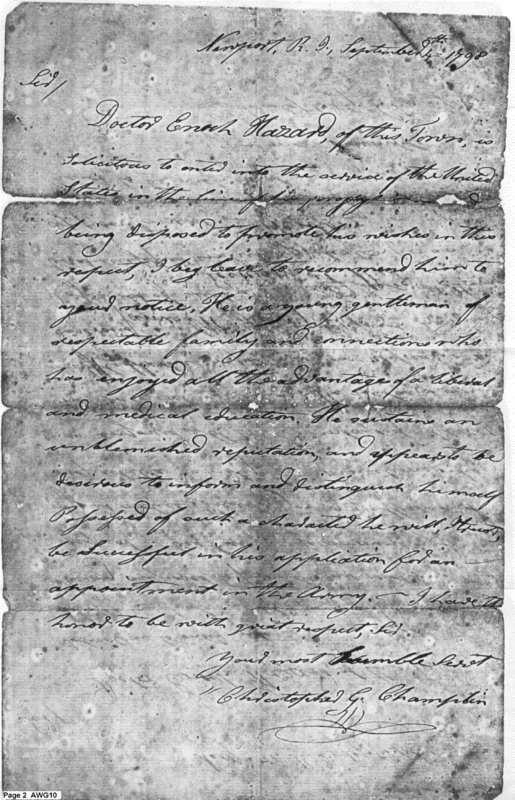 Newport, R. I., September 4th 1798
Sir/
Doctor Enoch Hazard, of this Town, is
solicitous to enter into the service of the United
States in the line of his and
being disposed to promote his wishes in this
respect, I beg leave to recommend him to
your notice. He is a young gentleman of
respectable family and connections who
has enjoyed all the advantage of a liberal
and medical education. He sustains an
unblemished reputation, and appears to be
desirous to inform and distinguish himself
Possessed of such a character he will, I trust,
be Successful in his application for an
appointment in the Army. — I have the
honor to be with great respect, Sir.
Your most humble Servt
Christopher G. Champlin
Page 2 AWG10